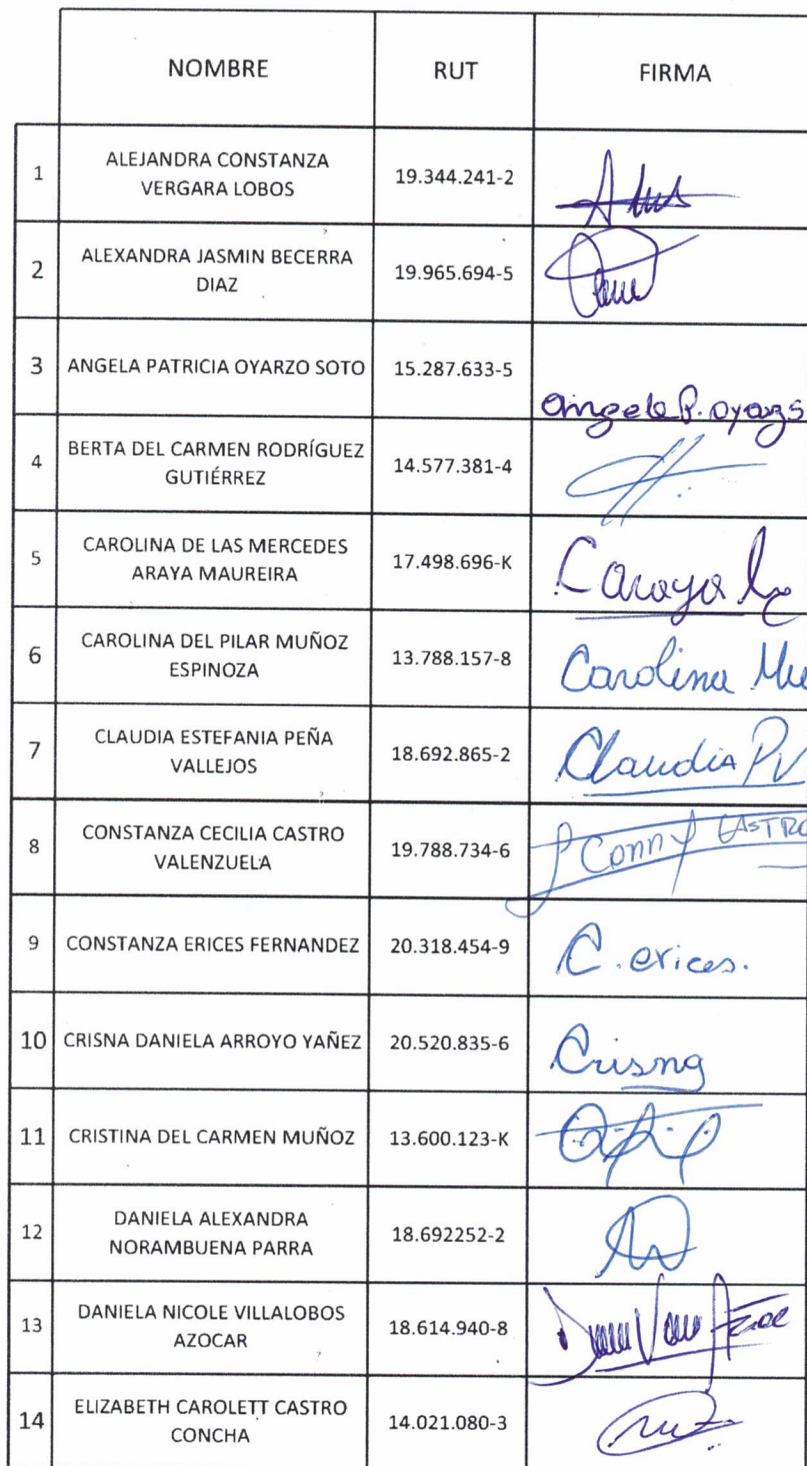 NOMBRE RUT FIRMA
1 ALEJANDRA CONSTANZA
VERGARA LOBOS 19.344.241-2
2 ALEXANDRA JASMIN BECERRA
DIAZ 19.965.694-5
3 ANGELA PATRICIA OYARZO SOTO 15.287.633-5
Angela P. oyarzo
4 BERTA DEL CARMEN RODRÍGUEZ
GUTIÉRREZ 14.577.381-4
5 CAROLINA DE LAS MERCEDES
ARAYA MAUREIRA 17.498.696-K
6 CAROLINA DEL PILAR MUÑOZ
ESPINOZA 13.788.157-8 Carolina Mu
7 CLAUDIA ESTEFANIA PEÑA
VALLEJOS 18.692.865-2 Claudia PV
8 CONSTANZA CECILIA CASTRO
VALENZUELA 19.788.734-6 Conny CASTRO
9 CONSTANZA ERICES FERNANDEZ 20.318.454-9 C. erices.
10 CRISNA DANIELA ARROYO YAÑEZ 20.520.835-6 Crisna
11 CRISTINA DEL CARMEN MUÑOZ 13.600.123-K
12 DANIELA ALEXANDRA
NORAMBUENA PARRA 18.692252-2
13 DANIELA NICOLE VILLALOBOS
AZOCAR 18.614.940-8
14 ELIZABETH CAROLETT CASTRO
CONCHA 14.021.080-3